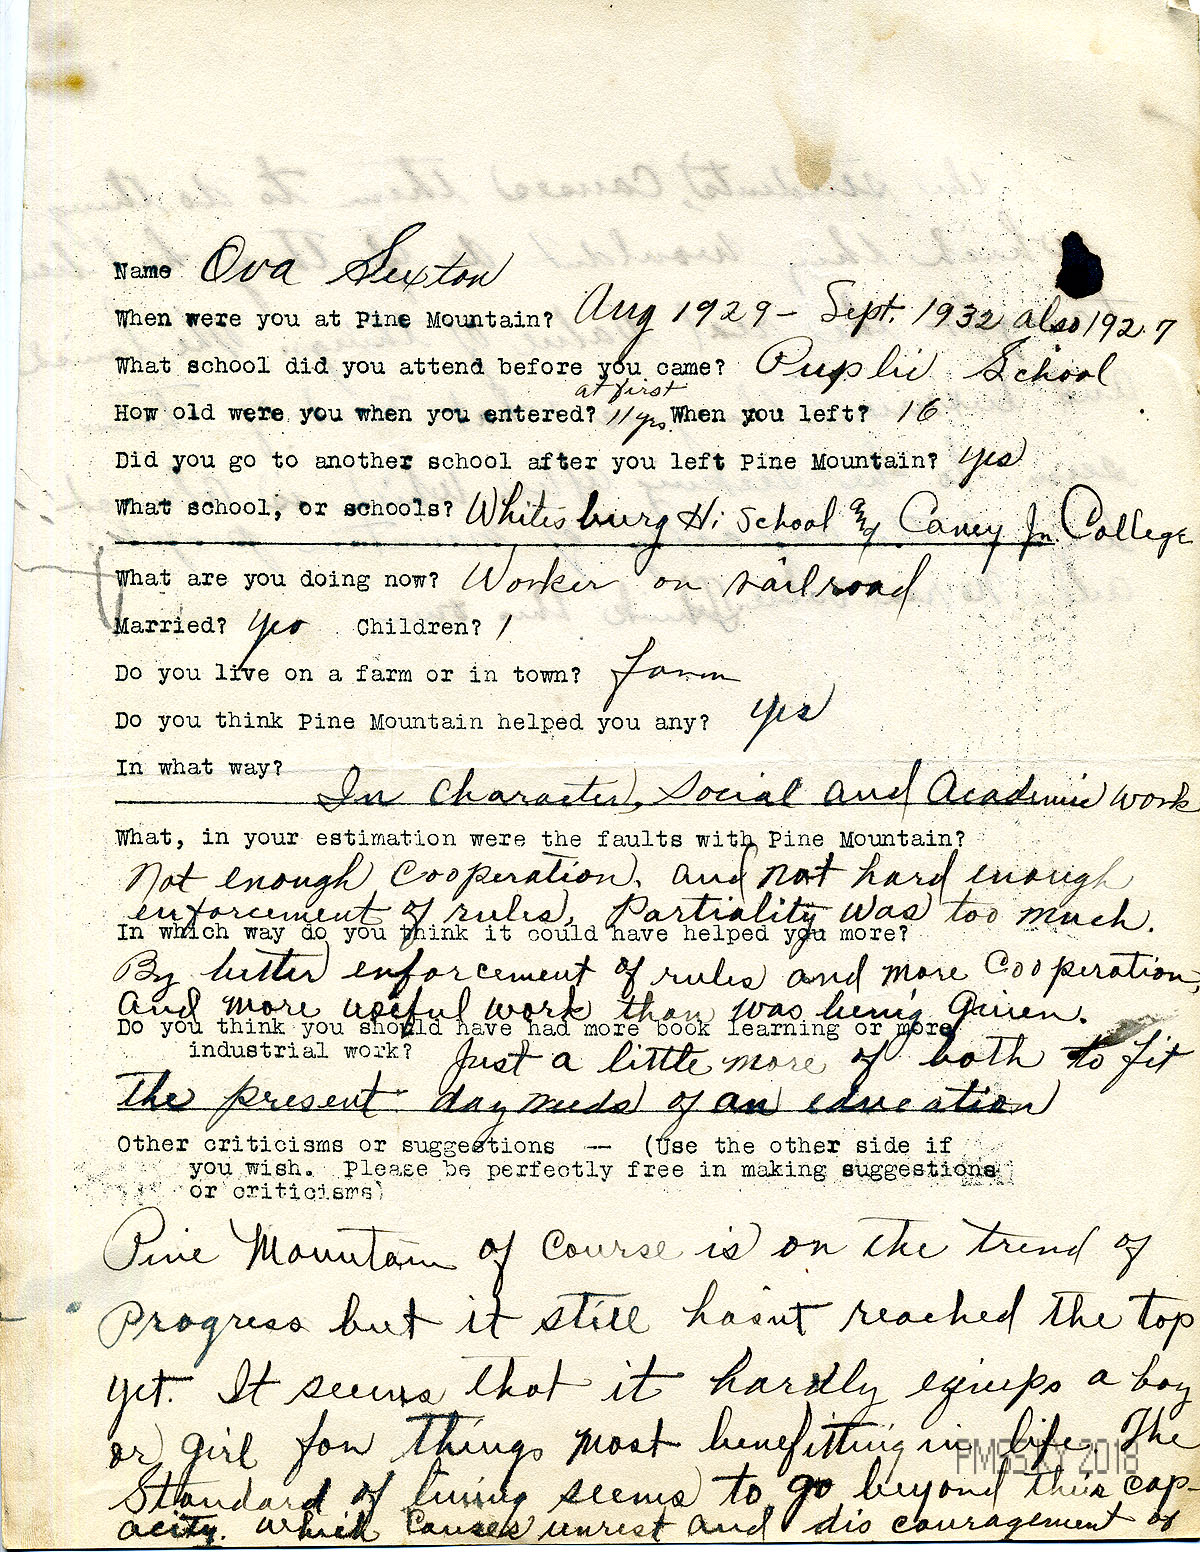 Name Ova Sexton
When were you at Pine Mountain? Aug 1929 - Sept. 1932 also 1927
What school did you attend before you came? Puplic School
at first
How old were you when you entered? 11 yrs. When you left? 16
Did you go to another school after you left Pine Mountain? yes
What school, or schools? Whitesburg Hi School and Caney Jn College
What are you doing now? Worker on railroad
Married? Yes Children? 1
Do you live on a farm or in town? farm
Do you think Pine Mountain helped you any? yes
In what way?
In character, social and Academic work
What, in your estimation were the faults with Pine Mountain?
Not enough cooperation, and not hard enough
enforcement of rules, Partiality was too much.
In which way do you think it could have helped you more?
By better enforcement of rules and more cooperation,
and more useful work than was being given.
Do you think you should have had more book learning or more
industrial work? Just a little more of both to fit
the present day needs of an education
Other criticisms or suggestions -- (Use the other side if
you wish. Please be perfectly free in making suggestions
or criticisms)
Pine Mountain of course is on the trend of
Progress but it still hasnt reached the top
yet. It seems that it hardly equips a boy
or girl for things most benefitting in life. The
Standard of living seems to go beyond this cap-
acity. which causes unrest and discouragement of
PMSSKY 2018